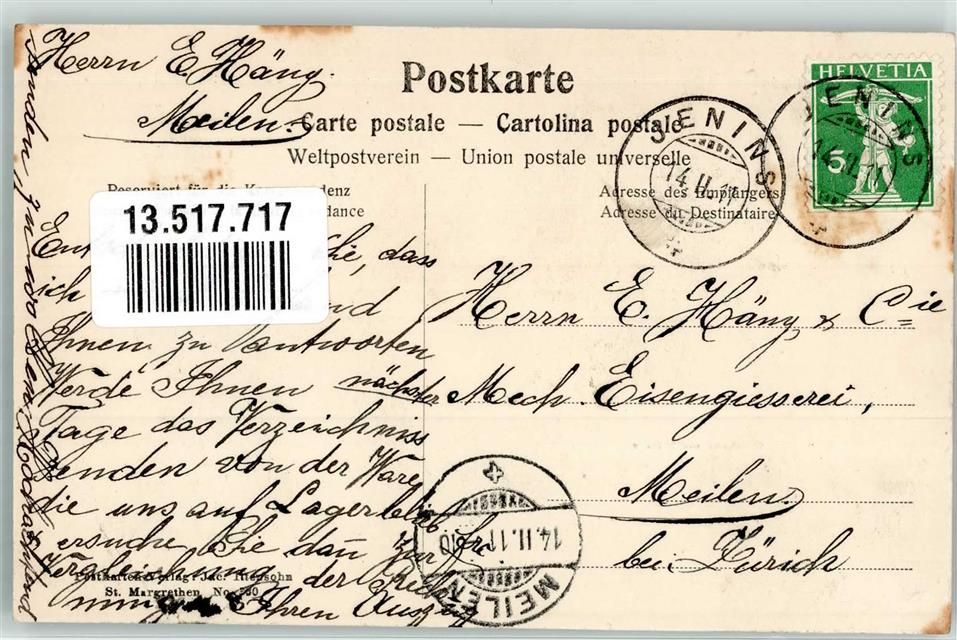 Herrn E. Häny.
Meilen.
Postkarte
Carte postale — Cartolina postale
Weltpostverein — Union postale universelle
Reserviert für die
Adresse des Empfängers
Adresse du Destinataire
HELVETIA
5
JENINS
14.II.11
JENINS
14.II.11
13.517.717
dass
ich
Ihnen zu antworten
Werde Ihnen nächster
Tage das Verzeichniss
senden von der Ware
die uns auf Lager
ersuche Sie dan zur
Vergleichung der
Ihren Auszug
zu senden
Herrn E. Häny & Cie
Mech. Eisengiesserei,
Meilen
bei Zürich
MEILEN
14.II.11
Postkarten-Verlag: Jac. Iltensohn
St. Margrethen. No. 760